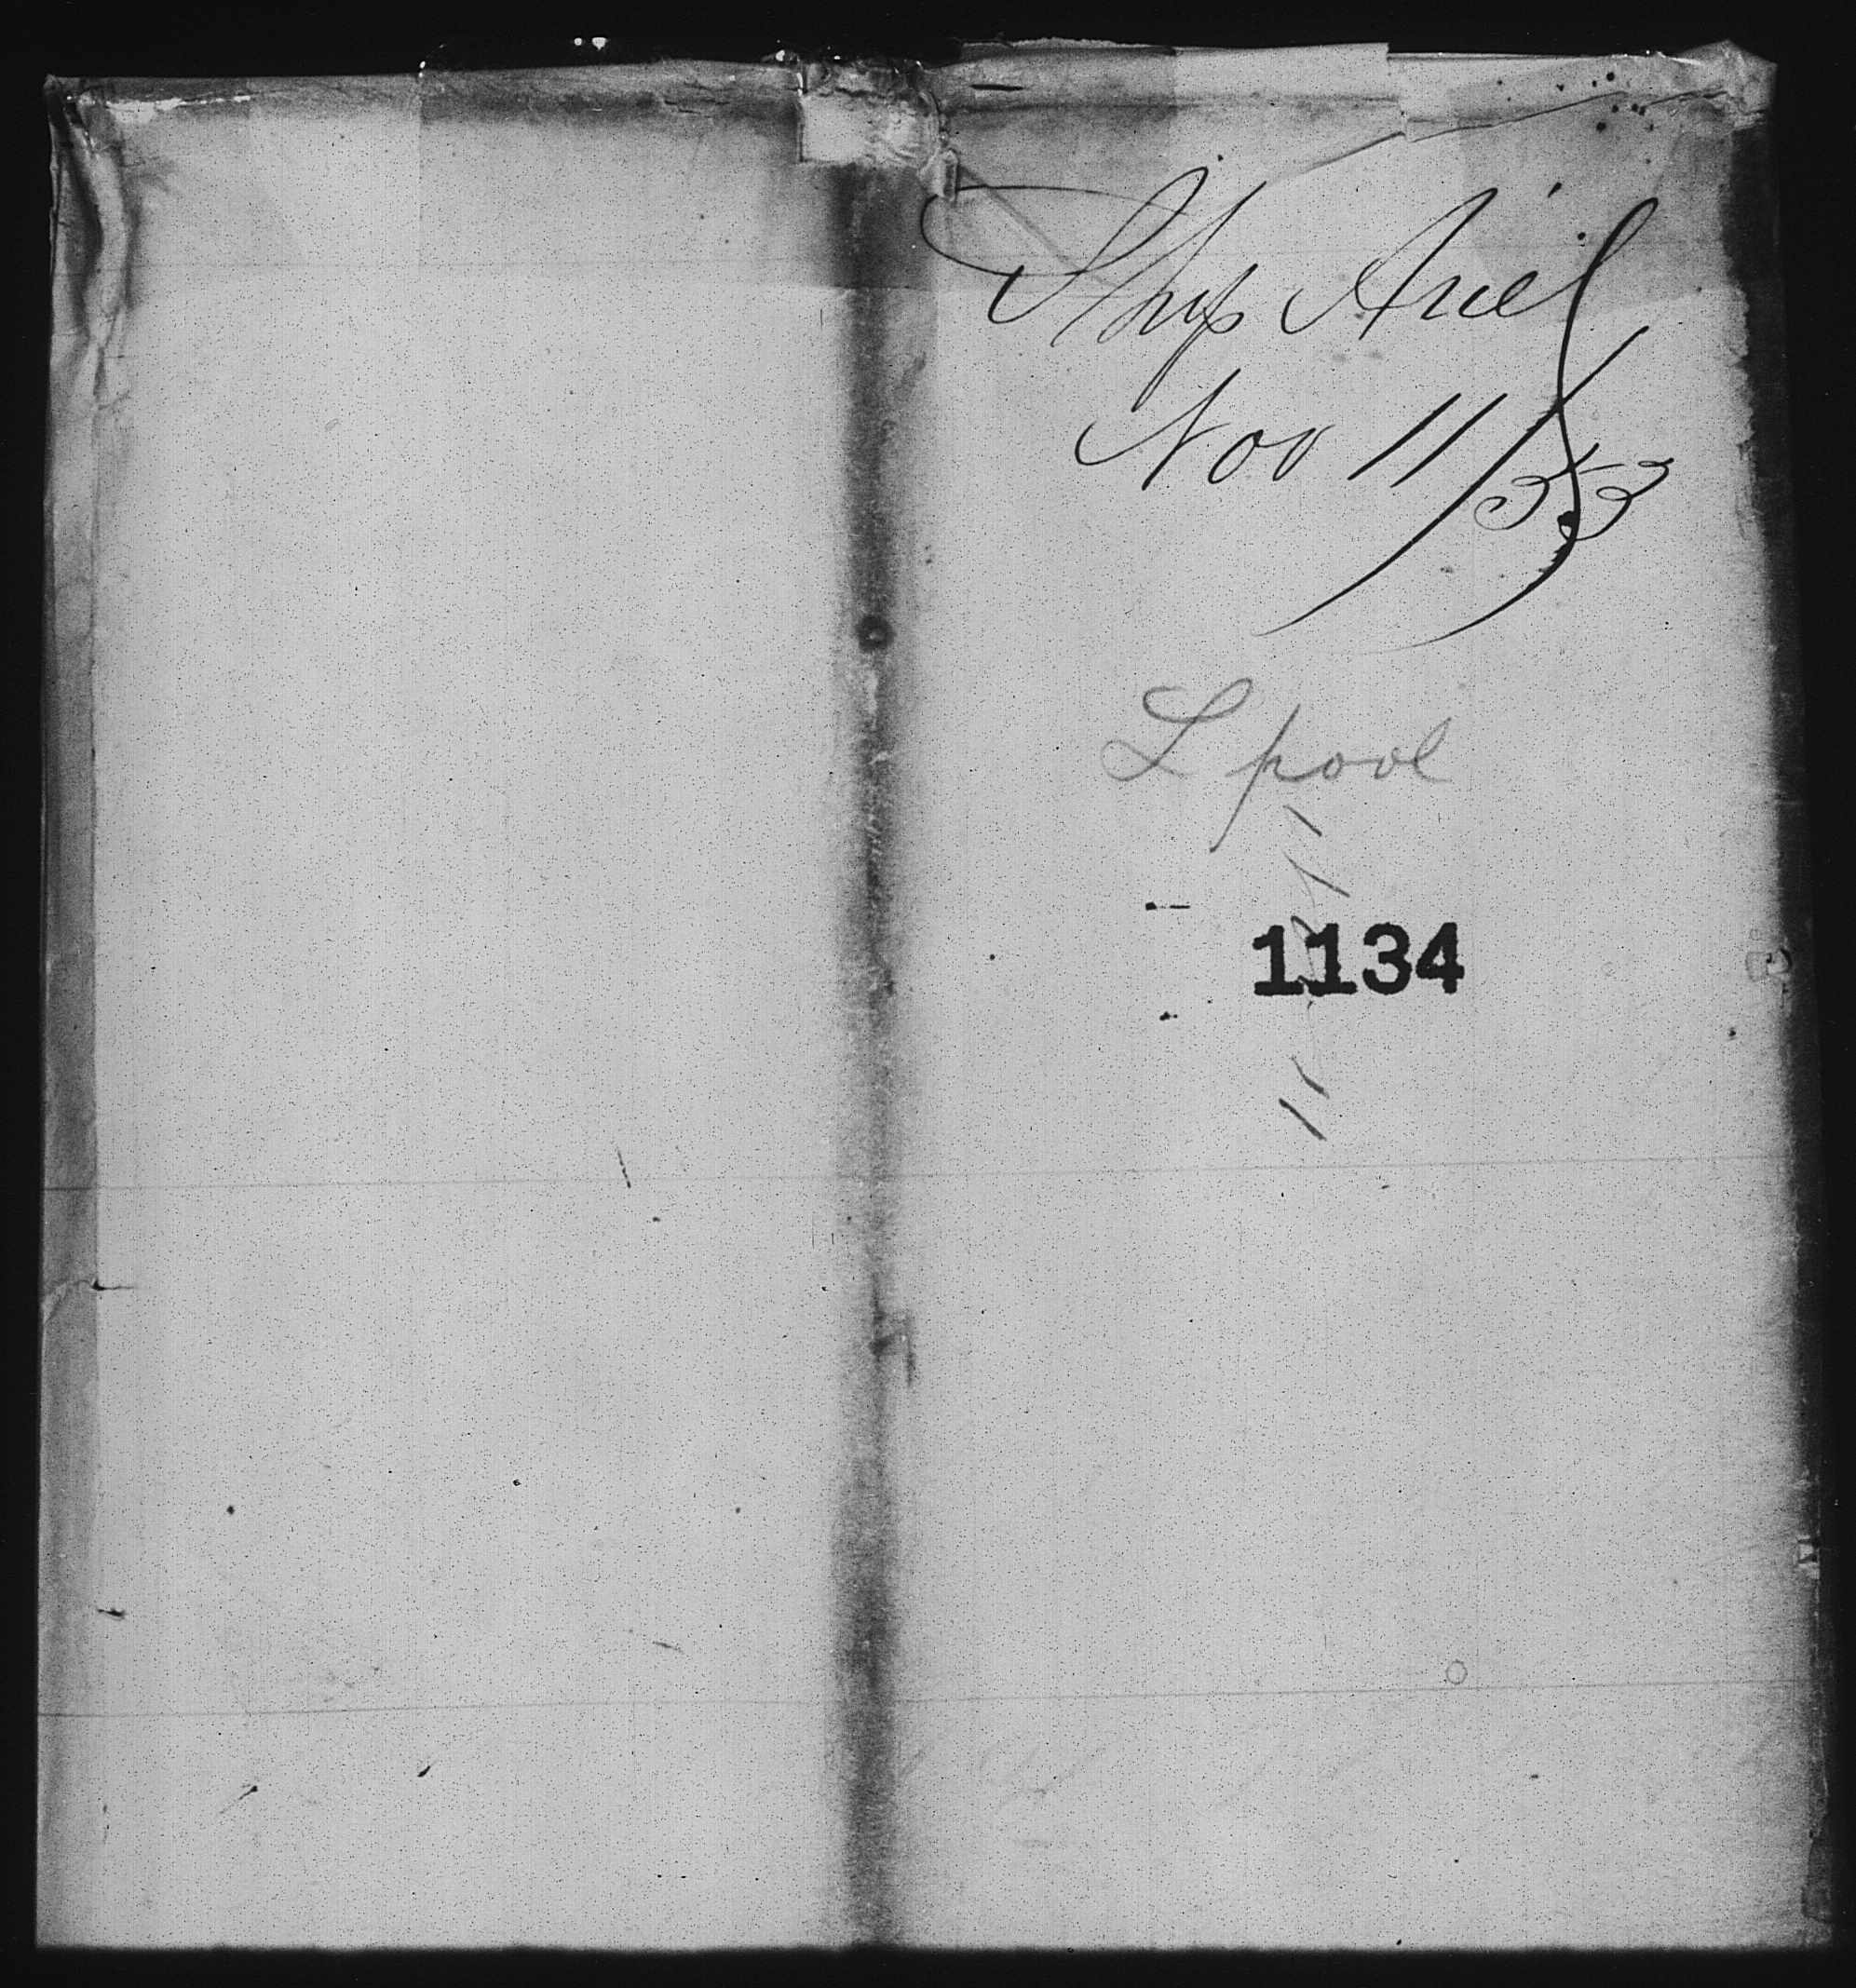 Ship Ariel
Nov 11/53
L pool
1134